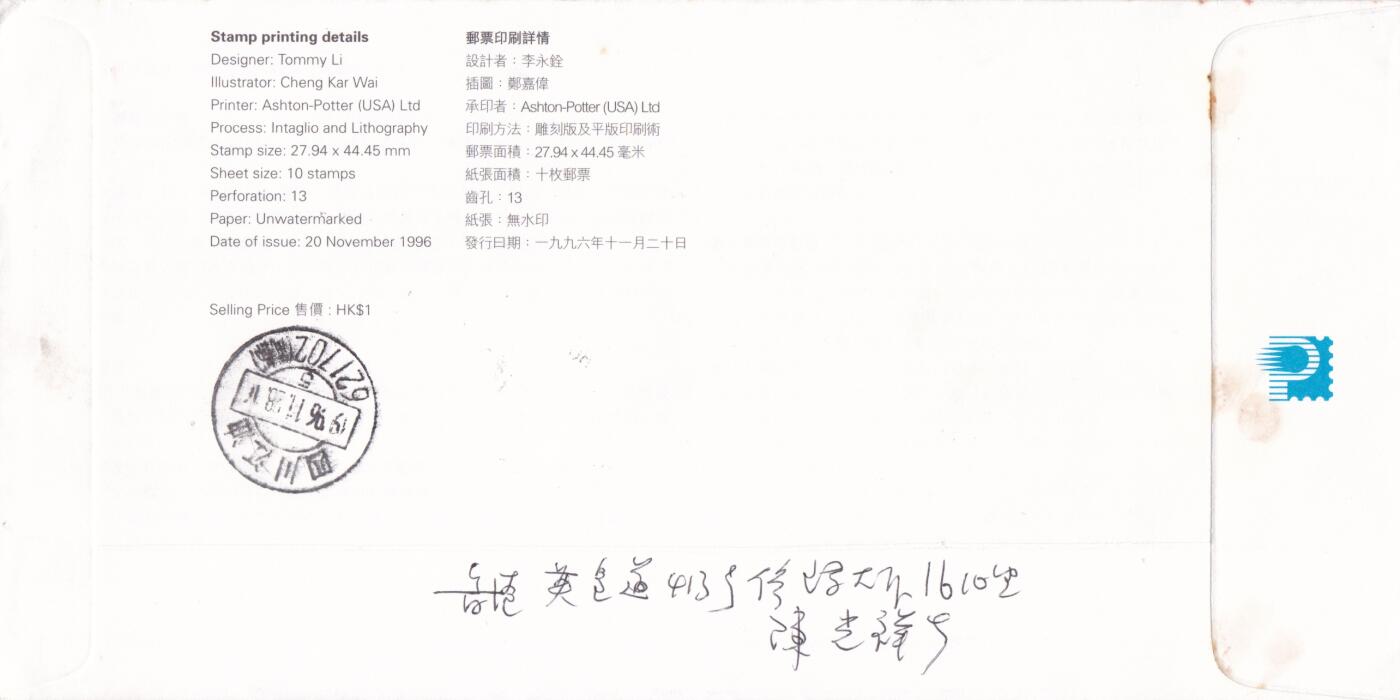 Stamp printing details
Designer: Tommy Li
Illustrator: Cheng Kar Wai
Printer: Ashton-Potter (USA) Ltd
Process: Intaglio and Lithography
Stamp size: 27.94 x 44.45 mm
Sheet size: 10 stamps
Perforation: 13
Paper: Unwatermarked
Date of issue: 20 November 1996
郵票印刷詳情
設計者：李永銓
插圖：鄭嘉偉
承印者：Ashton-Potter (USA) Ltd
印刷方法：雕刻版及平版印刷術
郵票面積：27.94 x 44.45 毫米
紙張面積：十枚郵票
齒孔：13
紙張：無水印
發行日期：一九九六年十一月二十日
Selling Price 售價：HK$1
621702
5
1996.11.28
四川江油
香港 英皇道 413号 大厦 1610室
陳光